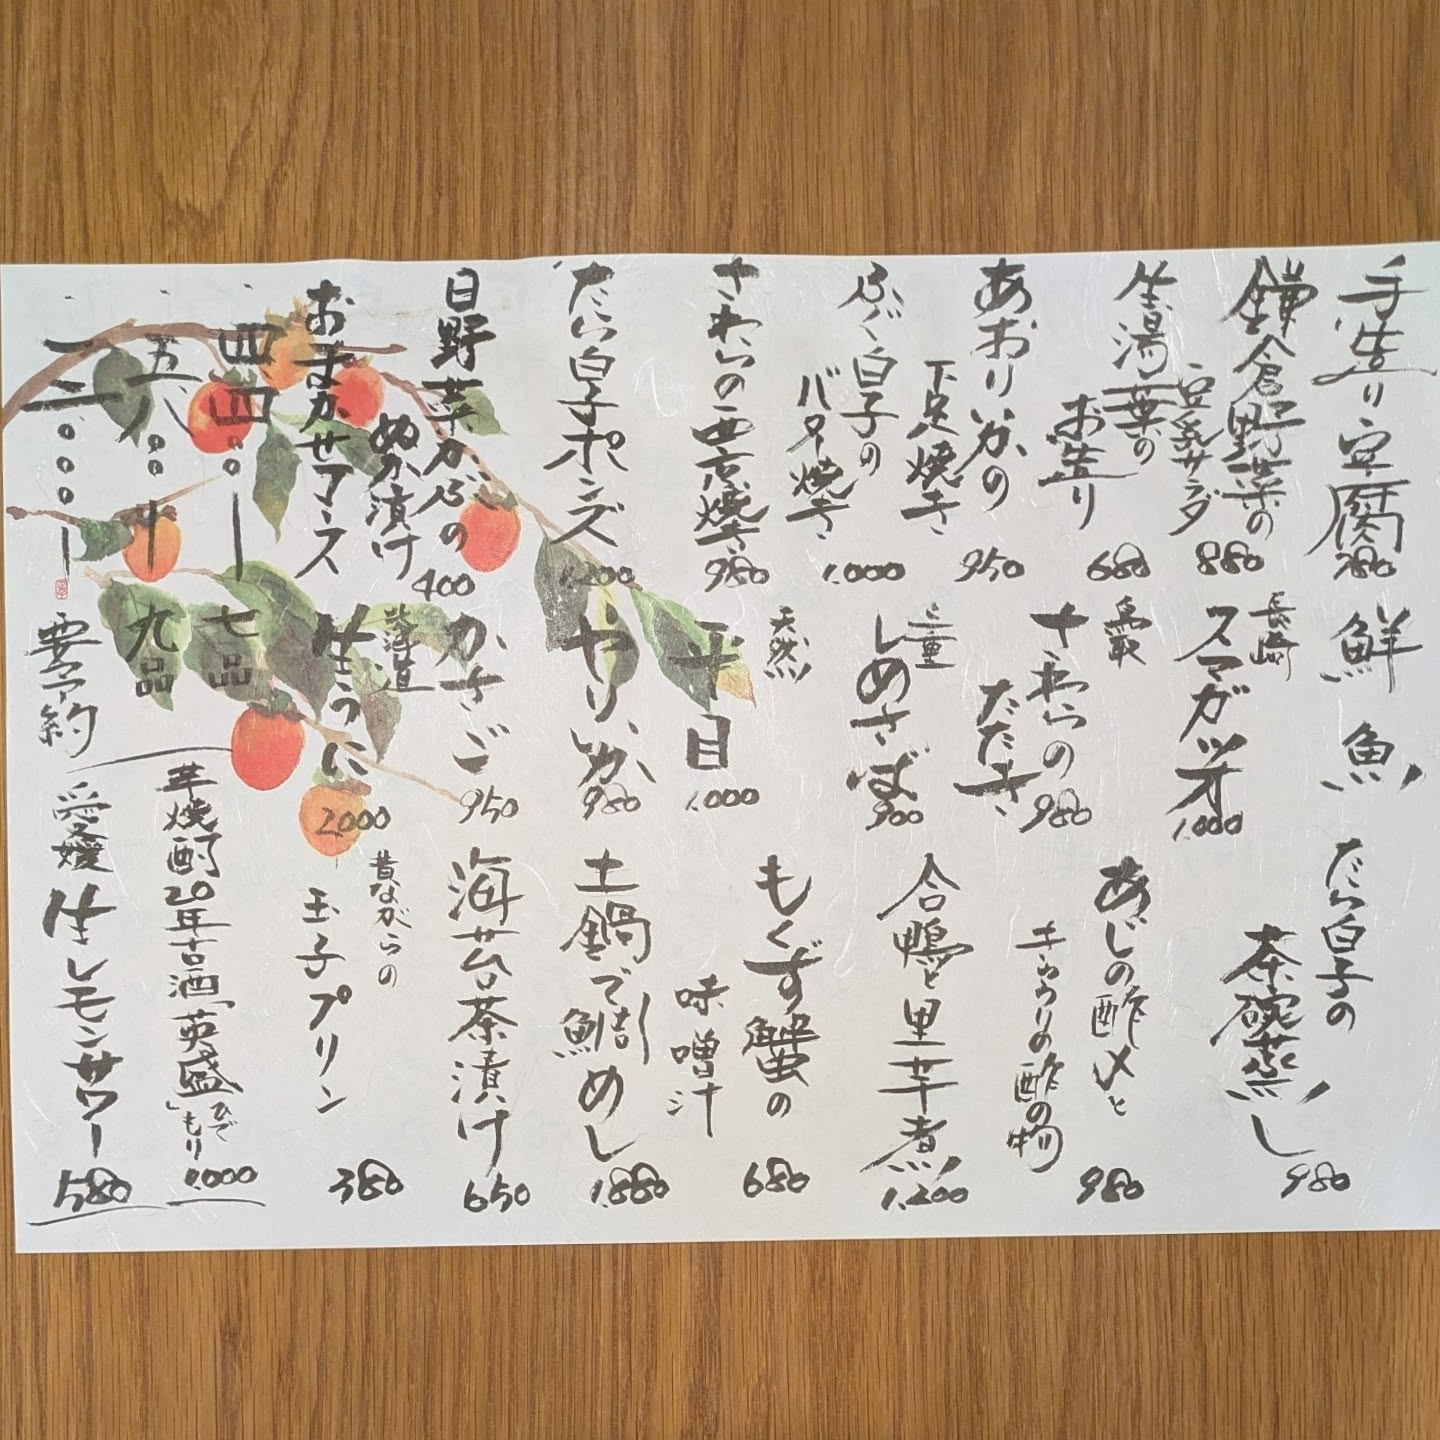 手造り豆腐
780
鎌倉野菜の
豆乳サラダ
880
生湯葉の
お造り
680
あおりいかの
下足焼き
950
ふぐ白子の
バター焼き
1.000
さわらの西京焼き
980
たら白子ポンズ
1.200
日野菜かぶの
ぬか漬け
400
おまかせコース
四、四〇〇ー
五、八〇〇ー
一二、〇〇〇ー
鮮魚
長崎
スマガツオ
1.000
鳥取
さわらの
たたき
980
三重
しめさば
900
天然
平目
1.000
やりいか
980
かさご
950
北海道
生うに
2.000
七品
九品
要予約
たら白子の
茶碗蒸し
980
あじの酢〆と
きゅうりの酢の物
980
合鴨と里芋煮
1.200
もくず蟹の
味噌汁
680
土鍋で鯛めし
1.880
海苔茶漬け
650
昔ながらの
玉子プリン
380
芋焼酎20年古酒「英盛」
ひでもり
1.000
愛媛
生レモンサワー
580